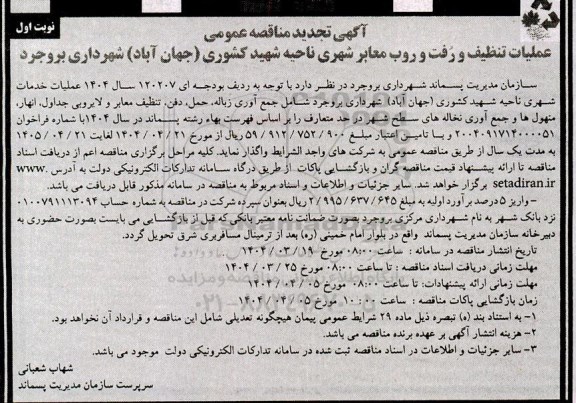 نوبت اول
آگهی تجدید مناقصه عمومی
عملیات تنظیف و رُفت و روب معابر شهری ناحیه شهید کشوری (جهان آباد) شهرداری بروجرد
سازمان مدیریت پسماند شهرداری بروجرد در نظر دارد با توجه به ردیف بودجه ای ۱۲۰۲۰۷ سال ۱۴۰۴ عملیات خدمات
شهری ناحیه شهید کشوری (جهان آباد) شهرداری بروجرد شامل جمع آوری زباله، حمل، دفن، تنظیف معابر و لایروبی جداول، انهار،
منهول ها و جمع آوری نخاله های سطح شهر در حد متعارف را بر اساس فهرست بهاء رشته پسماند در سال ۱۴۰۴با شماره فراخوان
۲۰۰۴۰۹۱۷۱۴۰۰۰۰۵۱ و با تامین اعتبار مبلغ ۵۹/۹۱۲/۷۵۲/۹۰۰ ریال از مورخ ۱۴۰۴/۰۴/۲۱ لغایت ۱۴۰۵/۰۴/۲۱
به مدت یک سال از طریق مناقصه عمومی به شرکت های واجد الشرایط واگذار نماید. کلیه مراحل برگزاری مناقصه اعم از دریافت اسناد
مناقصه تا ارائه پیشنهاد قیمت مناقصه گران و بازگشایی پاکات از طریق درگاه سامانه تدارکات الکترونیکی دولت به آدرس www.
setadiran.ir برگزار خواهد شد. سایر جزئیات و اطلاعات و اسناد مربوط به مناقصه در سامانه مذکور قابل دریافت می باشد.
- واریز ۵درصد برآورد اولیه به مبلغ ۲/۹۹۵/۶۳۷/۶۴۵ ریال بعنوان سپرده شرکت در مناقصه به شماره حساب ۰۱۰۰۷۹۱۱۱۳۰۹۴
نزد بانک شهر به نام شهرداری مرکزی بروجرد بصورت ضمانت نامه معتبر بانکی که قبل از بازگشایی می بایست بصورت حضوری به
دبیرخانه سازمان مدیریت پسماند واقع در بلوار امام خمینی (ره) بعد از ترمینال مسافربری شرق تحویل گردد.
تاریخ انتشار مناقصه در سامانه : ساعت ۰۸:۰۰ مورخ ۱۴۰۴/۰۳/۱۹
مهلت زمانی دریافت اسناد مناقصه : تا ساعت ۰۸:۰۰ مورخ ۱۴۰۴/۰۳/۲۵
مهلت زمانی ارائه پیشنهادات: تا ساعت ۰۸:۰۰ مورخ ۱۴۰۴/۰۴/۰۵
زمان بازگشایی پاکات مناقصه : ساعت ۱۰:۰۰ مورخ ۱۴۰۴/۰۴/۰۵
۱- به استناد بند (ه) تبصره ذیل ماده ۲۹ شرایط عمومی پیمان هیچگونه تعدیلی شامل این مناقصه و قرارداد آن نخواهد بود.
۲- هزینه انتشار آگهی بر عهده برنده مناقصه می باشد.
۳- سایر جزئیات و اطلاعات در اسناد مناقصه ثبت شده در سامانه تدارکات الکترونیکی دولت موجود می باشد.
شهاب شعبانی
سرپرست سازمان مدیریت پسماند